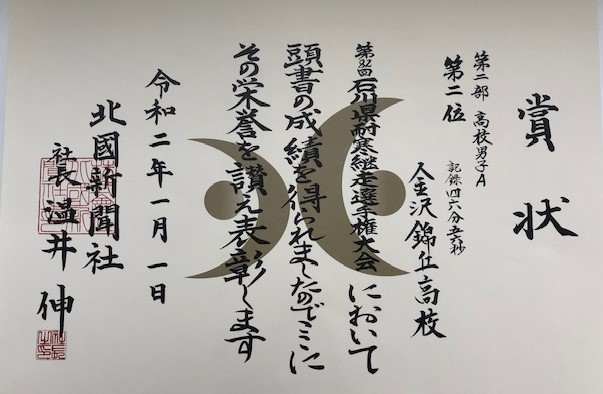 賞状
第二部 高校男子A
第二位
記録四六分五六秒
金沢錦丘高校
石川県耐寒継走選手権大会において
頭書の成績を得られましたのでここに
その栄誉を讃え表彰します
令和二年一月一日
北國新聞社
社長 温井 伸